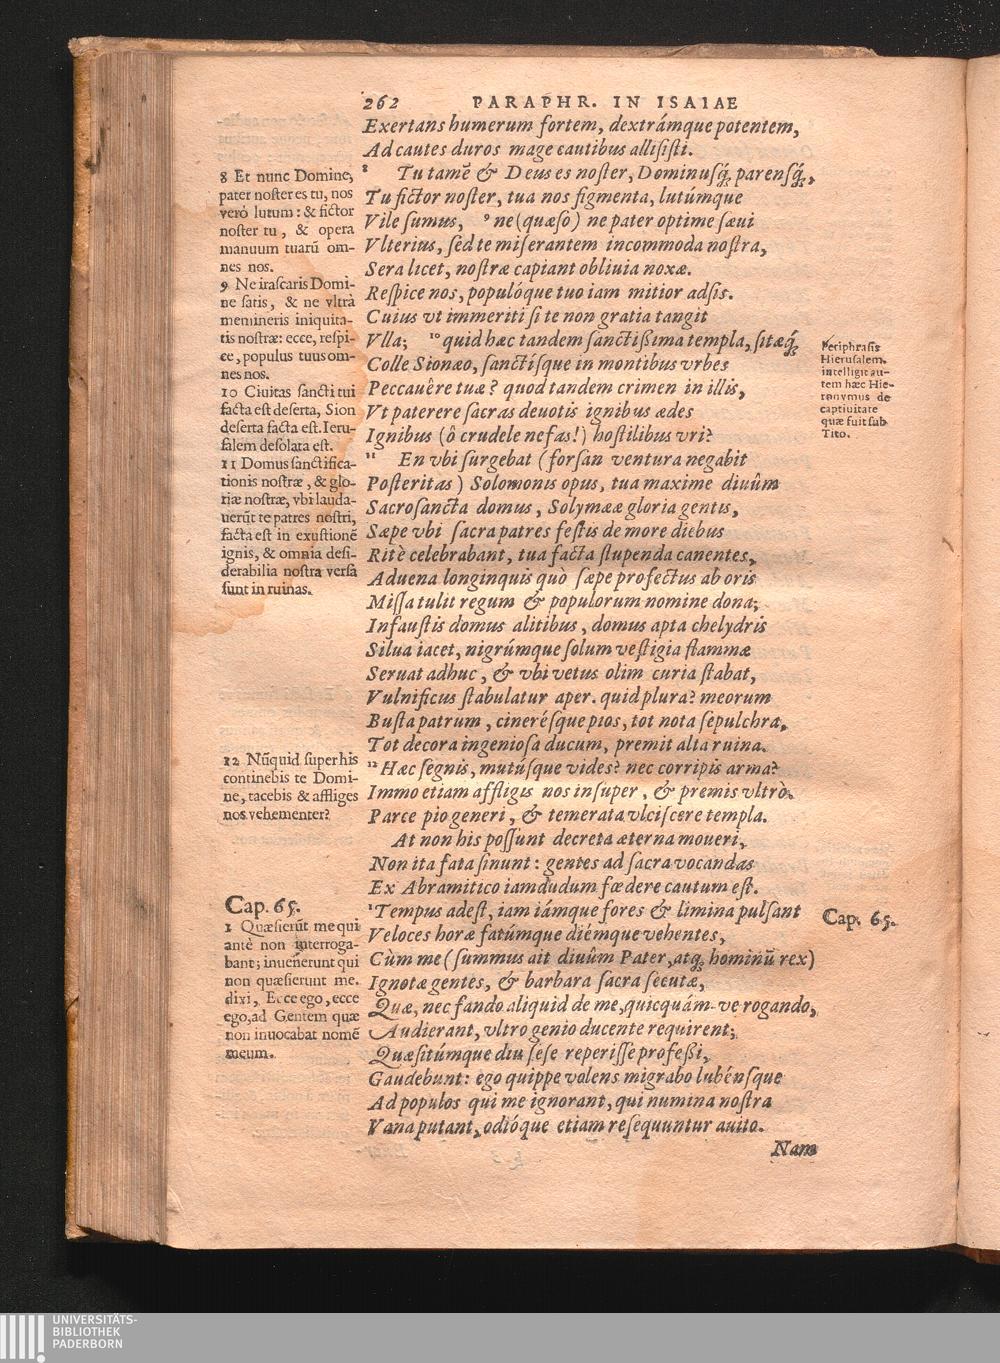 262 PARAPHR. IN ISAIAE
Exertans humerum fortem, dextrámque potentem,
Ad cautes duros mage cautibus allisisti.
8 Tu tamē & Deus es noster, Dominusq́, parensq́,
Tu fictor noster, tua nos figmenta, lutúmque
Vile sumus, 9 ne (quæso) ne pater optime sæui
Vlterius, sed te miserantem incommoda nostra,
Sera licet, nostræ capiant obliuia noxæ.
Respice nos, populóque tuo iam mitior adsis.
Cuius vt immeriti si te non gratia tangit
Vlla; 10 quid hæc tandem sanctißima templa, sitæq́
Colle Sionæo, sanctísque in montibus vrbes
Peccauêre tuæ? quod tandem crimen in illis,
Vt paterere sacras deuotis ignibus ædes
Ignibus (ô crudele nefas!) hostilibus vri?
11 En vbi surgebat (forsan ventura negabit
Posteritas) Solomonis opus, tua maxime diuûm
Sacrosancta domus, Solymææ gloria gentis,
Sæpe vbi sacra patres festis de more diebus
Ritè celebrabant, tua facta stupenda canentes,
Aduena longinquis quò sæpe profectus ab oris
Missa tulit regum & populorum nomine dona;
Infaustis domus alitibus, domus apta chelydris
Silua iacet, nigrúmque solum vestigia flammæ
Seruat adhuc, & vbi vetus olim curia stabat,
Vulnificus stabulatur aper. quid plura? meorum
Busta patrum, cinerésque pios, tot nota sepulchra,
Tot decora ingeniosa ducum, premit alta ruina.
12 Hæc segnis, mutúsque vides? nec corripis arma?
Immo etiam affligis nos insuper, & premis vltrò.
Parce pio generi, & temerata vlciscere templa.
At non his possunt decreta æterna moueri,
Non ita fata sinunt: gentes ad sacra vocandas
Ex Abramitico iamdudum fœdere cautum est.
1 Tempus adest, iam iámque fores & limina pulsant
Veloces horæ fatúmque diémque vehentes,
Cùm me (summus ait diuûm Pater, atq́; hominū rex)
Ignotæ gentes, & barbara sacra secutæ,
Quæ, nec fando aliquid de me, quicquám-ve rogando,
Audierant, vltro genio ducente requirent;
Quæsitúmque diu sese reperisse profeßi,
Gaudebunt: ego quippe volens migrabo lubénsque
Ad populos qui me ignorant, qui numina nostra
Vana putant, odióque etiam resequuntur auito.
Nam
8 Et nunc Domine,
pater noster es tu, nos
verò lutum: & fictor
noster tu, & opera
manuum tuarū om-
nes nos.
9 Ne irascaris Domi-
ne satis, & ne vltrà
memineris iniquita-
tis nostræ: ecce, respi-
ce, populus tuus om-
nes nos.
10 Ciuitas sancti tui
facta est deserta, Sion
deserta facta est. Ieru-
salem desolata est.
11 Domus sanctifica-
tionis nostræ, & glo-
riæ nostræ, vbi lauda-
uerūt te patres nostri,
facta est in exustionē
ignis, & omnia desi-
derabilia nostra versa
sunt in ruinas.
12 Nūquid super his
continebis te Domi-
ne, tacebis & affliges
nos vehementer?
Cap. 65.
1 Quæsierūt me qui
antè non interroga-
bant; inuenerunt qui
non quæsierunt me.
dixi, Ecce ego, ecce
ego, ad Gentem quæ
non inuocabat nomē
meum.
Periphrasis
Hierusalem.
intelligit au-
tem hæc Hie-
ronymus de
captiuitate
quæ fuit sub
Tito.
Cap. 65.
UNIVERSITÄTS-
BIBLIOTHEK
PADERBORN